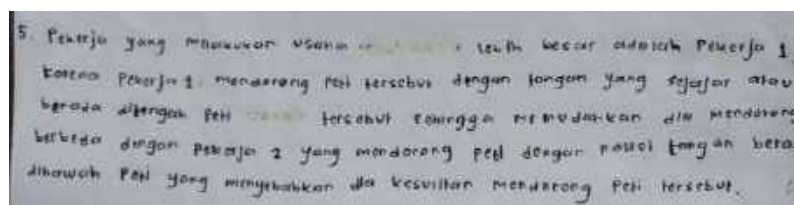 5. Pekerja yang melakukan usaha lebih besar adalah Pekerja 1
karena Pekerja 1 mendorong Peti tersebut dengan tangan yang sejajar atau
berada ditengah Peti tersebut sehingga memudahkan dia mendorong
berbeda dengan Pekerja 2 yang mendorong peti dengan posisi tangan bera
dibawah Peti yang menyebabkan dia kesulitan mendorong Peti tersebut.